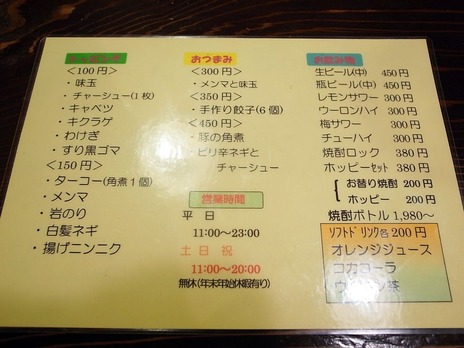 トッピング
<100円>
・味玉
・チャーシュー(1枚)
・キャベツ
・キクラゲ
・わけぎ
・すり黒ゴマ
<150円>
・ターコー(角煮1個)
・メンマ
・岩のり
・白髪ネギ
・揚げニンニク
おつまみ
<300円>
・メンマと味玉
<350円>
・手作り餃子(6個)
<450円>
・豚の角煮
・ピリ辛ネギと
チャーシュー
営業時間
平 日
11:00~23:00
土 日 祝
11:00~20:00
無休(年末年始休暇有り)
お飲み物
生ビール(中) 450円
瓶ビール(中) 450円
レモンサワー 300円
ウーロンハイ 300円
梅サワー 300円
チューハイ 300円
焼酎ロック 380円
ホッピーセット 380円
お替り焼酎 200円
ホッピー 200円
焼酎ボトル 1,980~
ソフトドリンク各 200円
オレンジジュース
コカコーラ
ウーロン茶